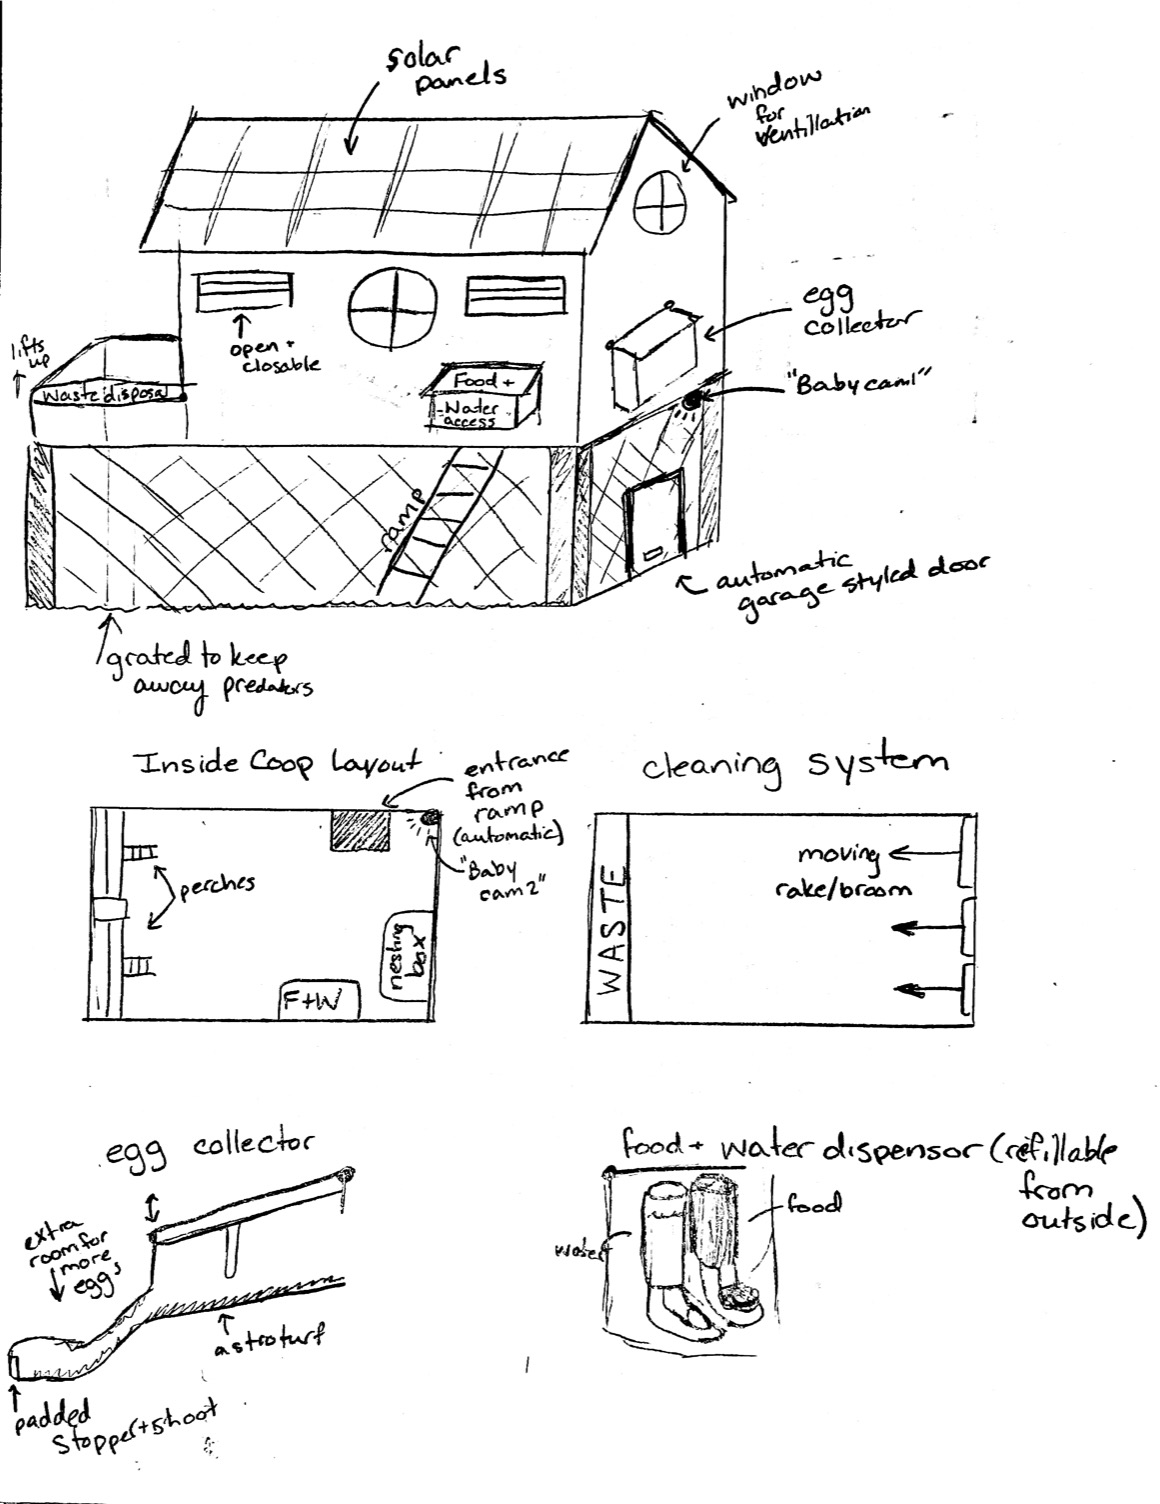 solar
panels
window
for
ventillation
egg
collector
"Baby cam1"
lifts
up
open +
closable
waste disposal
Food +
Water
access
ramp
automatic
garage styled door
grated to keep
away predators
Inside Coop Layout
entrance
from
ramp
(automatic)
"Baby
cam2"
perches
nesting
box
F+W
cleaning system
moving
rake/broom
WASTE
egg collector
extra
room for
more
eggs
astroturf
padded
stopper+shoot
food + water dispensor (refillable
from
outside)
food
water